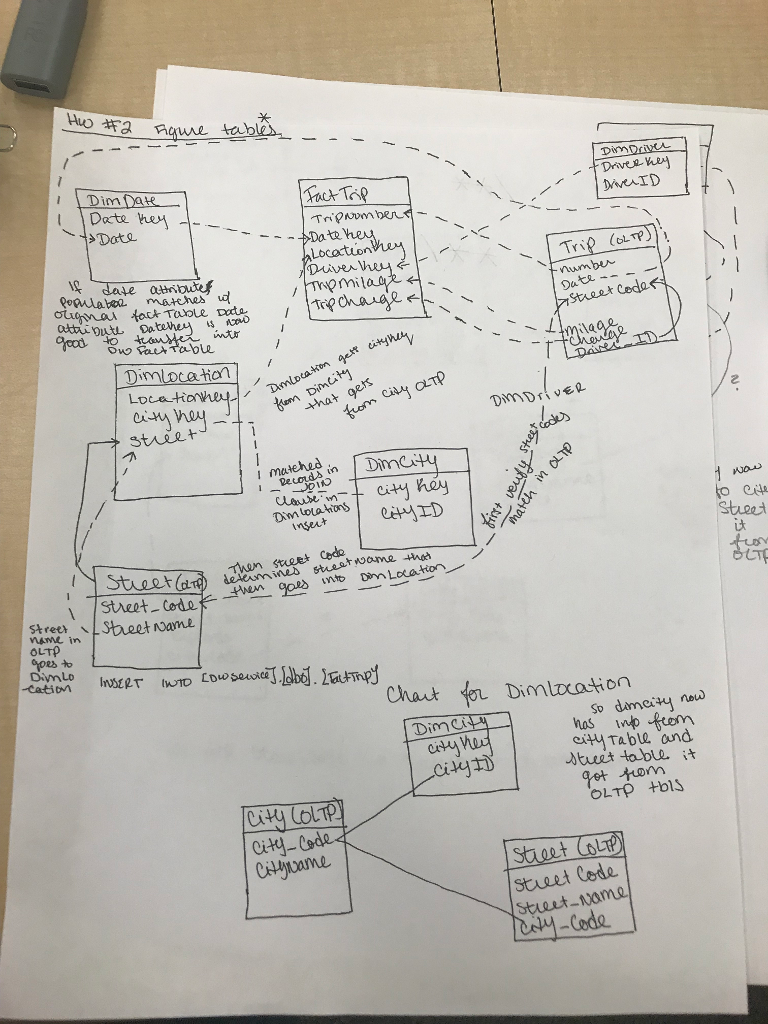 HW #2 Figure tables *
DimDriver
DriverKey
DriverID
DimDate
Date Key
Date
FactTrip
TripNumber
DateKey
LocationKey
DriverKey
TripMilage
TripCharge
Trip (OLTP)
number
Date
StreetCode
Milage
Charge
Driver_ID
If date attribute
populator matches w/
original fact Table Date
attribute DateKey is now
good to transfer into
DW FactTable
DimLocation
LocationKey
City Key
Street
DimLocation gets cityKey
from DimCity
that gets
from City OLTP
DIMDRIVER
first verify street codes
match in OLTP
matched
Records in
JOIN
Clause in
DimLocations
Insert
DimCity
City Key
City ID
?
now
to City
Street
it
from
OLTP
Then street code
determines streetName that
then goes into DimLocation
Street (OLTP)
Street_Code
StreetName
Street
name in
OLTP
goes to
DimLo
-cation
INSERT INTO [DWService].[dbo].[FactTrip]
Chart for DimLocation
DimCity
CityKey
CityID
so dimcity now
has info from
cityTable and
street table it
got from
OLTP tbls
City (OLTP)
City_Code
CityName
Street (OLTP)
Street Code
Street_Name
City_Code